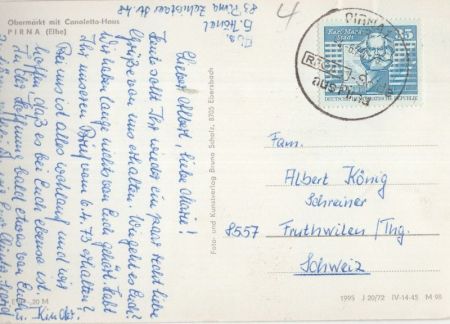 Obermarkt mit Canaletto-Haus
PIRNA (Elbe)
4
PIRNA
Karl-Marx-Stadt
35
DEUTSCHE DEMOKRATISCHE REPUBLIK
Liebert Albert, liebe Marie!
Heute sollt Ihr wieder ein paar recht liebe
Grüße von uns erhalten. Wie geht es Euch?
Wir haben lange nichts von Euch gehört. Habt
Ihr unseren Brief vom 6.4.73 erhalten?
Bei uns ist alles wohlauf und wir
hoffen, daß es bei Euch ebenso ist.
In der Hoffnung bald etwas von Euch
u. Kinder.
Foto- und Kunstverlag Bruno Scholz, 8705 Ebersbach
Fam.
Albert König
Schreiner
8557 Fruthwilen/Thg.
Schweiz
EVP -,20 M
1995 J 20/72 IV-14-45 M 98